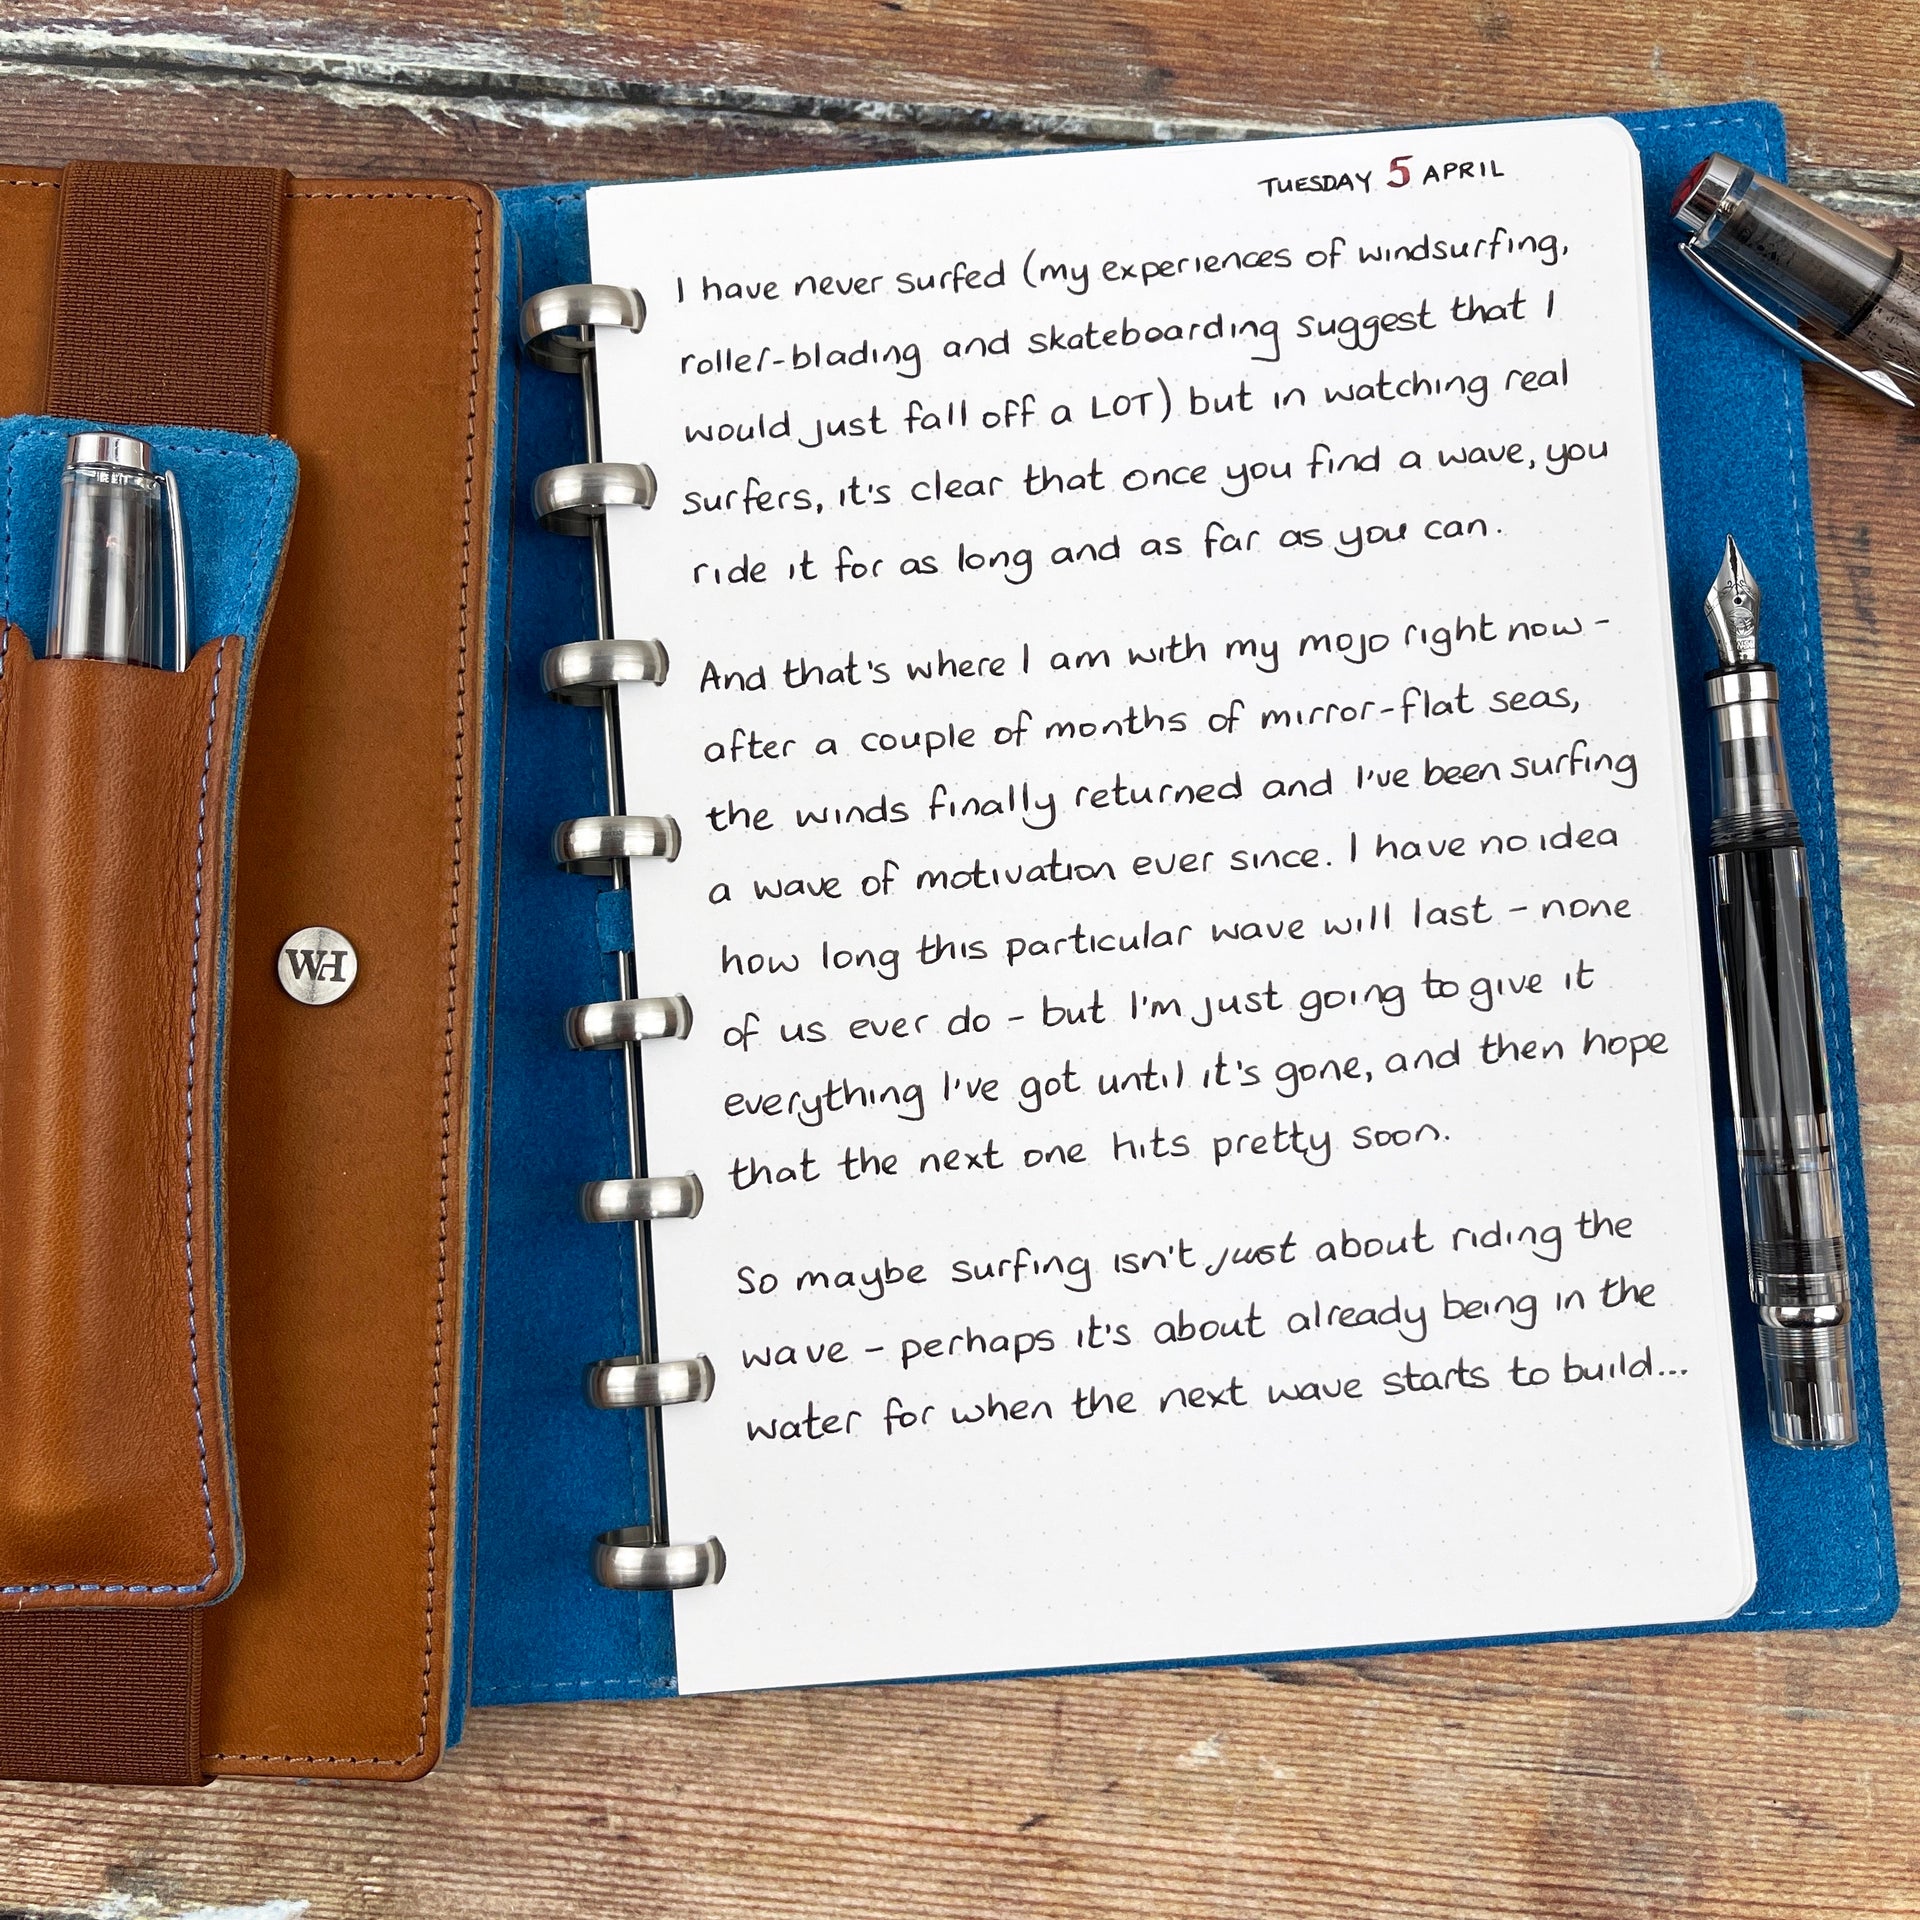 TUESDAY 5 APRIL
I have never surfed (my experiences of windsurfing,
roller-blading and skateboarding suggest that I
would just fall off a LOT) but in watching real
surfers, it's clear that once you find a wave, you
ride it for as long and as far as you can.
And that's where I am with my mojo right now -
after a couple of months of mirror-flat seas,
the winds finally returned and I've been surfing
a wave of motivation ever since. I have no idea
how long this particular wave will last - none
of us ever do - but I'm just going to give it
everything I've got until it's gone, and then hope
that the next one hits pretty soon.
So maybe surfing isn't just about riding the
wave - perhaps it's about already being in the
water for when the next wave starts to build...
WH